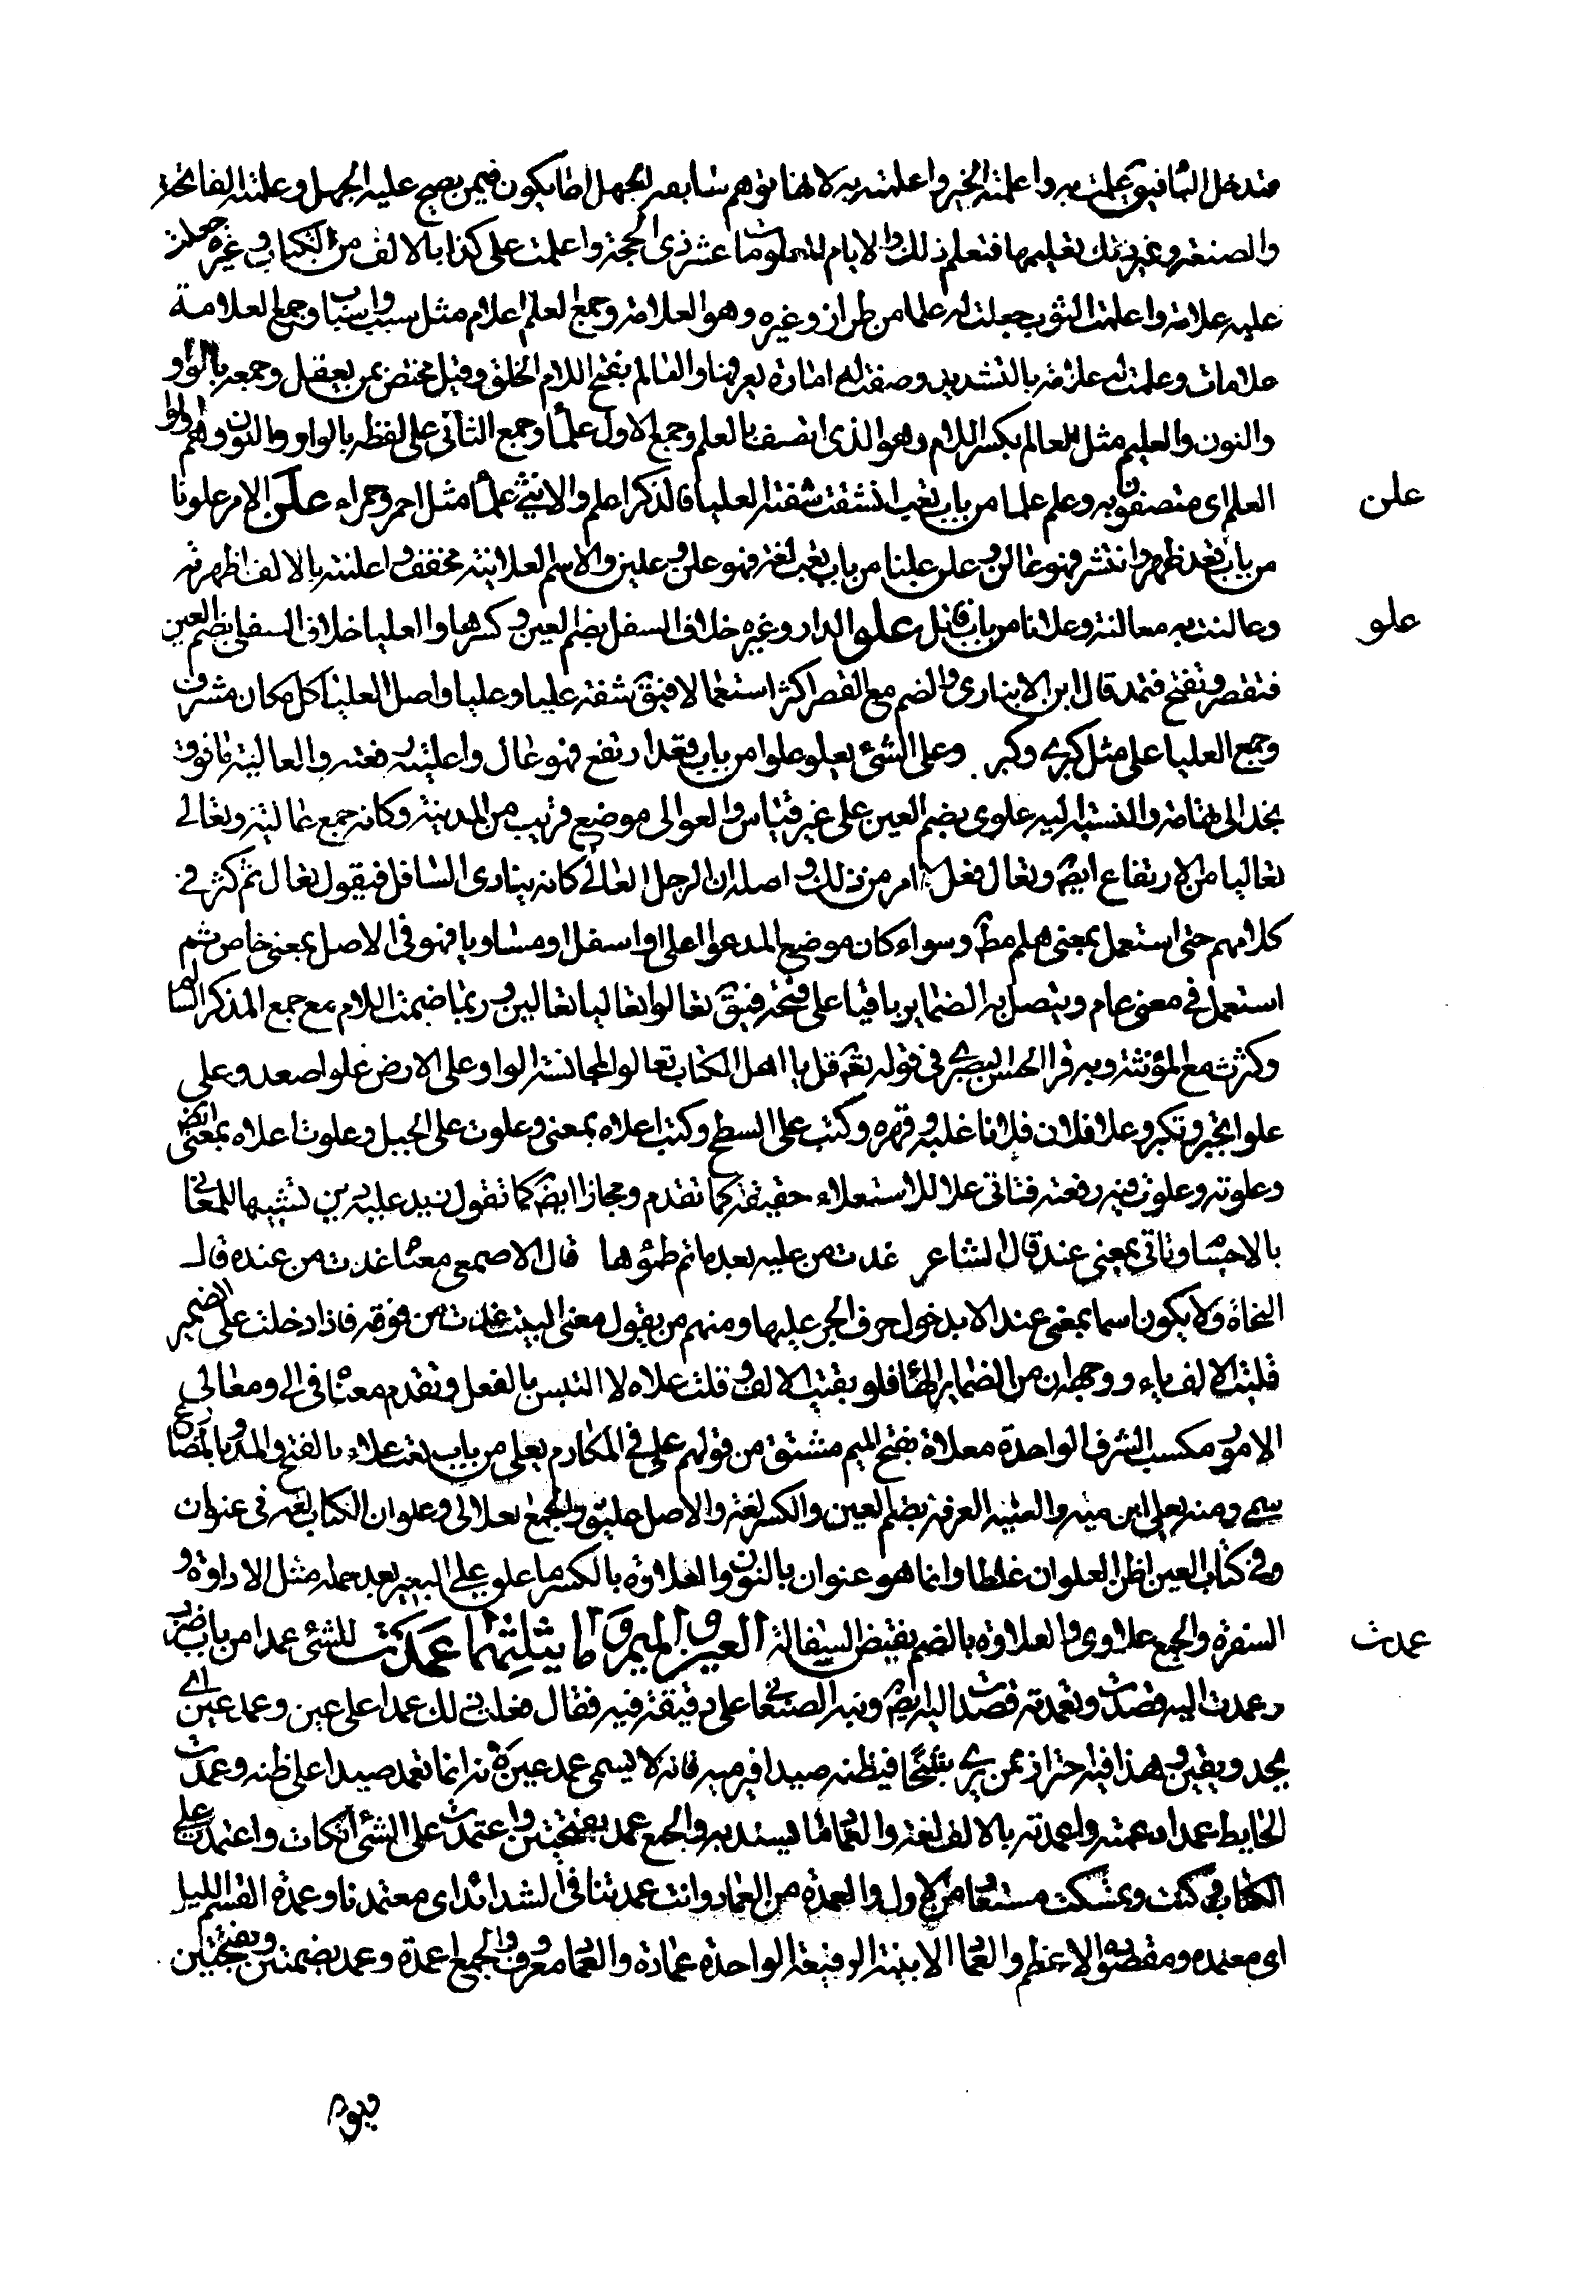 فتدخل الباء فيق علمت به واعلمته الخبر واعلمته به لا لهنا توهم سابقه الجهل انما يكون فيمن يصح عليه الجهل وعلمته الفاتحة
والصنعة وغير ذلك تعليمها فتعلم ذلك والايام المعلومات عشر ذي الحجة واعلمت على كذا بالالف من الكتاب وغيره جعلت
عليه علامة واعلمت الثوب جعلت له علما من طراز وغيره وهو العلامة وجمع العلم اعلام مثل سبب واسباب وجمع العلامة
علامات وعلمت له علامة بالتشديد وضعت له امارة يعرفها والعالم بفتح اللام الخلق وقيل مختص بمن يعقل وجمعه بالواو
والنون والعليم مثل العالم بكسر اللام وهو الذي اتصف بالعلم وجمع الاول علما وجمع الثاني على لفظه بالواو والنون وهم اولوا
علن
العلم اي متصفون به وعلم علما من باب تعب انشقت شفته العليا فالذكر اعلم والانثى علماء مثل احمر وحمراء علن الامر علونا
من باب قعد ظهر وانتشر فهو عالن وعلن علنا من باب تعب لغة فهو علن وعلين والاسم العلانية مخفف واعلنته بالالف اظهرته
علو
وعالنت به معالنة وعلانا من باب قاتل علو الدار وغيره خلاف السفل بضم العين وكسرها والعليا خلاف السفلى بضم العين
فتقصر وتفتح فتمد قال ابن الانباري والضم مع القصر اكثر استعمالا فيق شفة عليا وعليا واصل العليا كل مكان مشرف
وجمع العليا على مثل كبرى وكبر وعلى الشئ يعلو علوا من باب قعد ارتفع فهو عال واعليته رفعته والعالية ما فوق
نجد الى تهامة والنسبة اليه علوي بضم العين على غير قياس والعوالي موضع قريب من المدينة وكانه جمع عالية وتعالى
تعاليا من الارتفاع ايضً وتعال فعل امر من ذلك واصله ان الرجل العالي كانه ينادي السافل فيقول تعال ثم كثر في
كلامهم حتى استعمل بمعنى هلم مط وسواء كان موضع المدعو اعلى او اسفل او مساويا فهو في الاصل بمعنى خاص ثم
استعمل في معنى عام ويتصل به الضماير باقيا على فتحه فيق تعالوا تعاليا تعالين وربما ضمت اللام مع جمع المذكر السالم
وكثرت مع المؤنثة وبه قرا الحسن البصري في قوله تعم قل يا اهل الكتاب تعالوا لمجانسة الواو وعلى الارض علوا صعد وعلى
علوا تجبر وتكبر وعلا فلان فلانا غلبه وقهره وكتب على السطح وكتب اعلاه بمعنى وعلوت على الجبل وعلوت اعلاه بمعنى ايضً
وعلوته وعلوت فيه رفعته فتاتي علا للاستعلاء حقيقة كما تقدم ومجازا ايضً كما تقول زيد عليه دين تشبيها للمعاني
بالاجسام وتاتي بمعنى عند قال الشاعر غدت من عليه بعد ما تم ظمؤها قال الاصمعي معناه غدت من عنده قالـ
النحاة ولا يكون اسما بمعنى عند الا بدخول حرف الجر عليها ومنهم من يقول معنى البيت غدت من فوقه فاذا دخلت على الضمير
قلبت الالف ياء ووجهه ان من الضماير الهاء فلو بقيت الالف وقلت علاه لا التبس بالفعل وتقدم معناه في الى ومعالي
الامور مكسب الشرف الواحدة معلاة بفتح الميم مشتق من قولهم علي في المكارم يعلى من باب تعب علاء بالفتح والمد وبالمضارع
سمي ومنه يعلى ابن منيه والعلية الغرفة بضم العين والكسر لغة والاصل عليوة والجمع العلالي وعلوان الكتاب لغة في عنوان
وفي كتاب العين اظن العلوان غلطا وانما هو عنوان بالنون والعلاوة بالكسر ما علق على البعير بعد حمله مثل الاداوة و
عمدت
السفرة والجمع علاوى والعلاوة بالضم نقيض السفالة العين والميم وما يثلثهما عمدت للشئ عمدا من باب ضرب
وعمدت اليه قصدت وتعمدته قصدت اليه ايضً ونبه الصغاني على دقيقة فيه فقال فعلت ذلك عمدا على عين وعمد عين اي
بجد ويقين وهذا فيه احتراز عمن يرى شبحا فيظنه صيدا فيرميه فانه لا يسمى عمد عين لانه انما تعمد صيدا على ظنه وعمدت
الحايط عمدا دعمته واعمدته بالالف لغة والعماد ما يسند به والجمع عمد بفتحتين واعتمدت على الشئ اتكات واعتمدت على
الكتاب وكنت وتمسكت مستعار من الاول والعمدة من العماد وانت عمدتنا في الشدائد اي معتمدنا وعمدة القسم الليل
اي معتمده ومقصوده الاعظم والعماد الابنية الرفيعة الواحدة عمادة والعمود معروف والجمع اعمدة وعمد بضمتين وبفتحتين